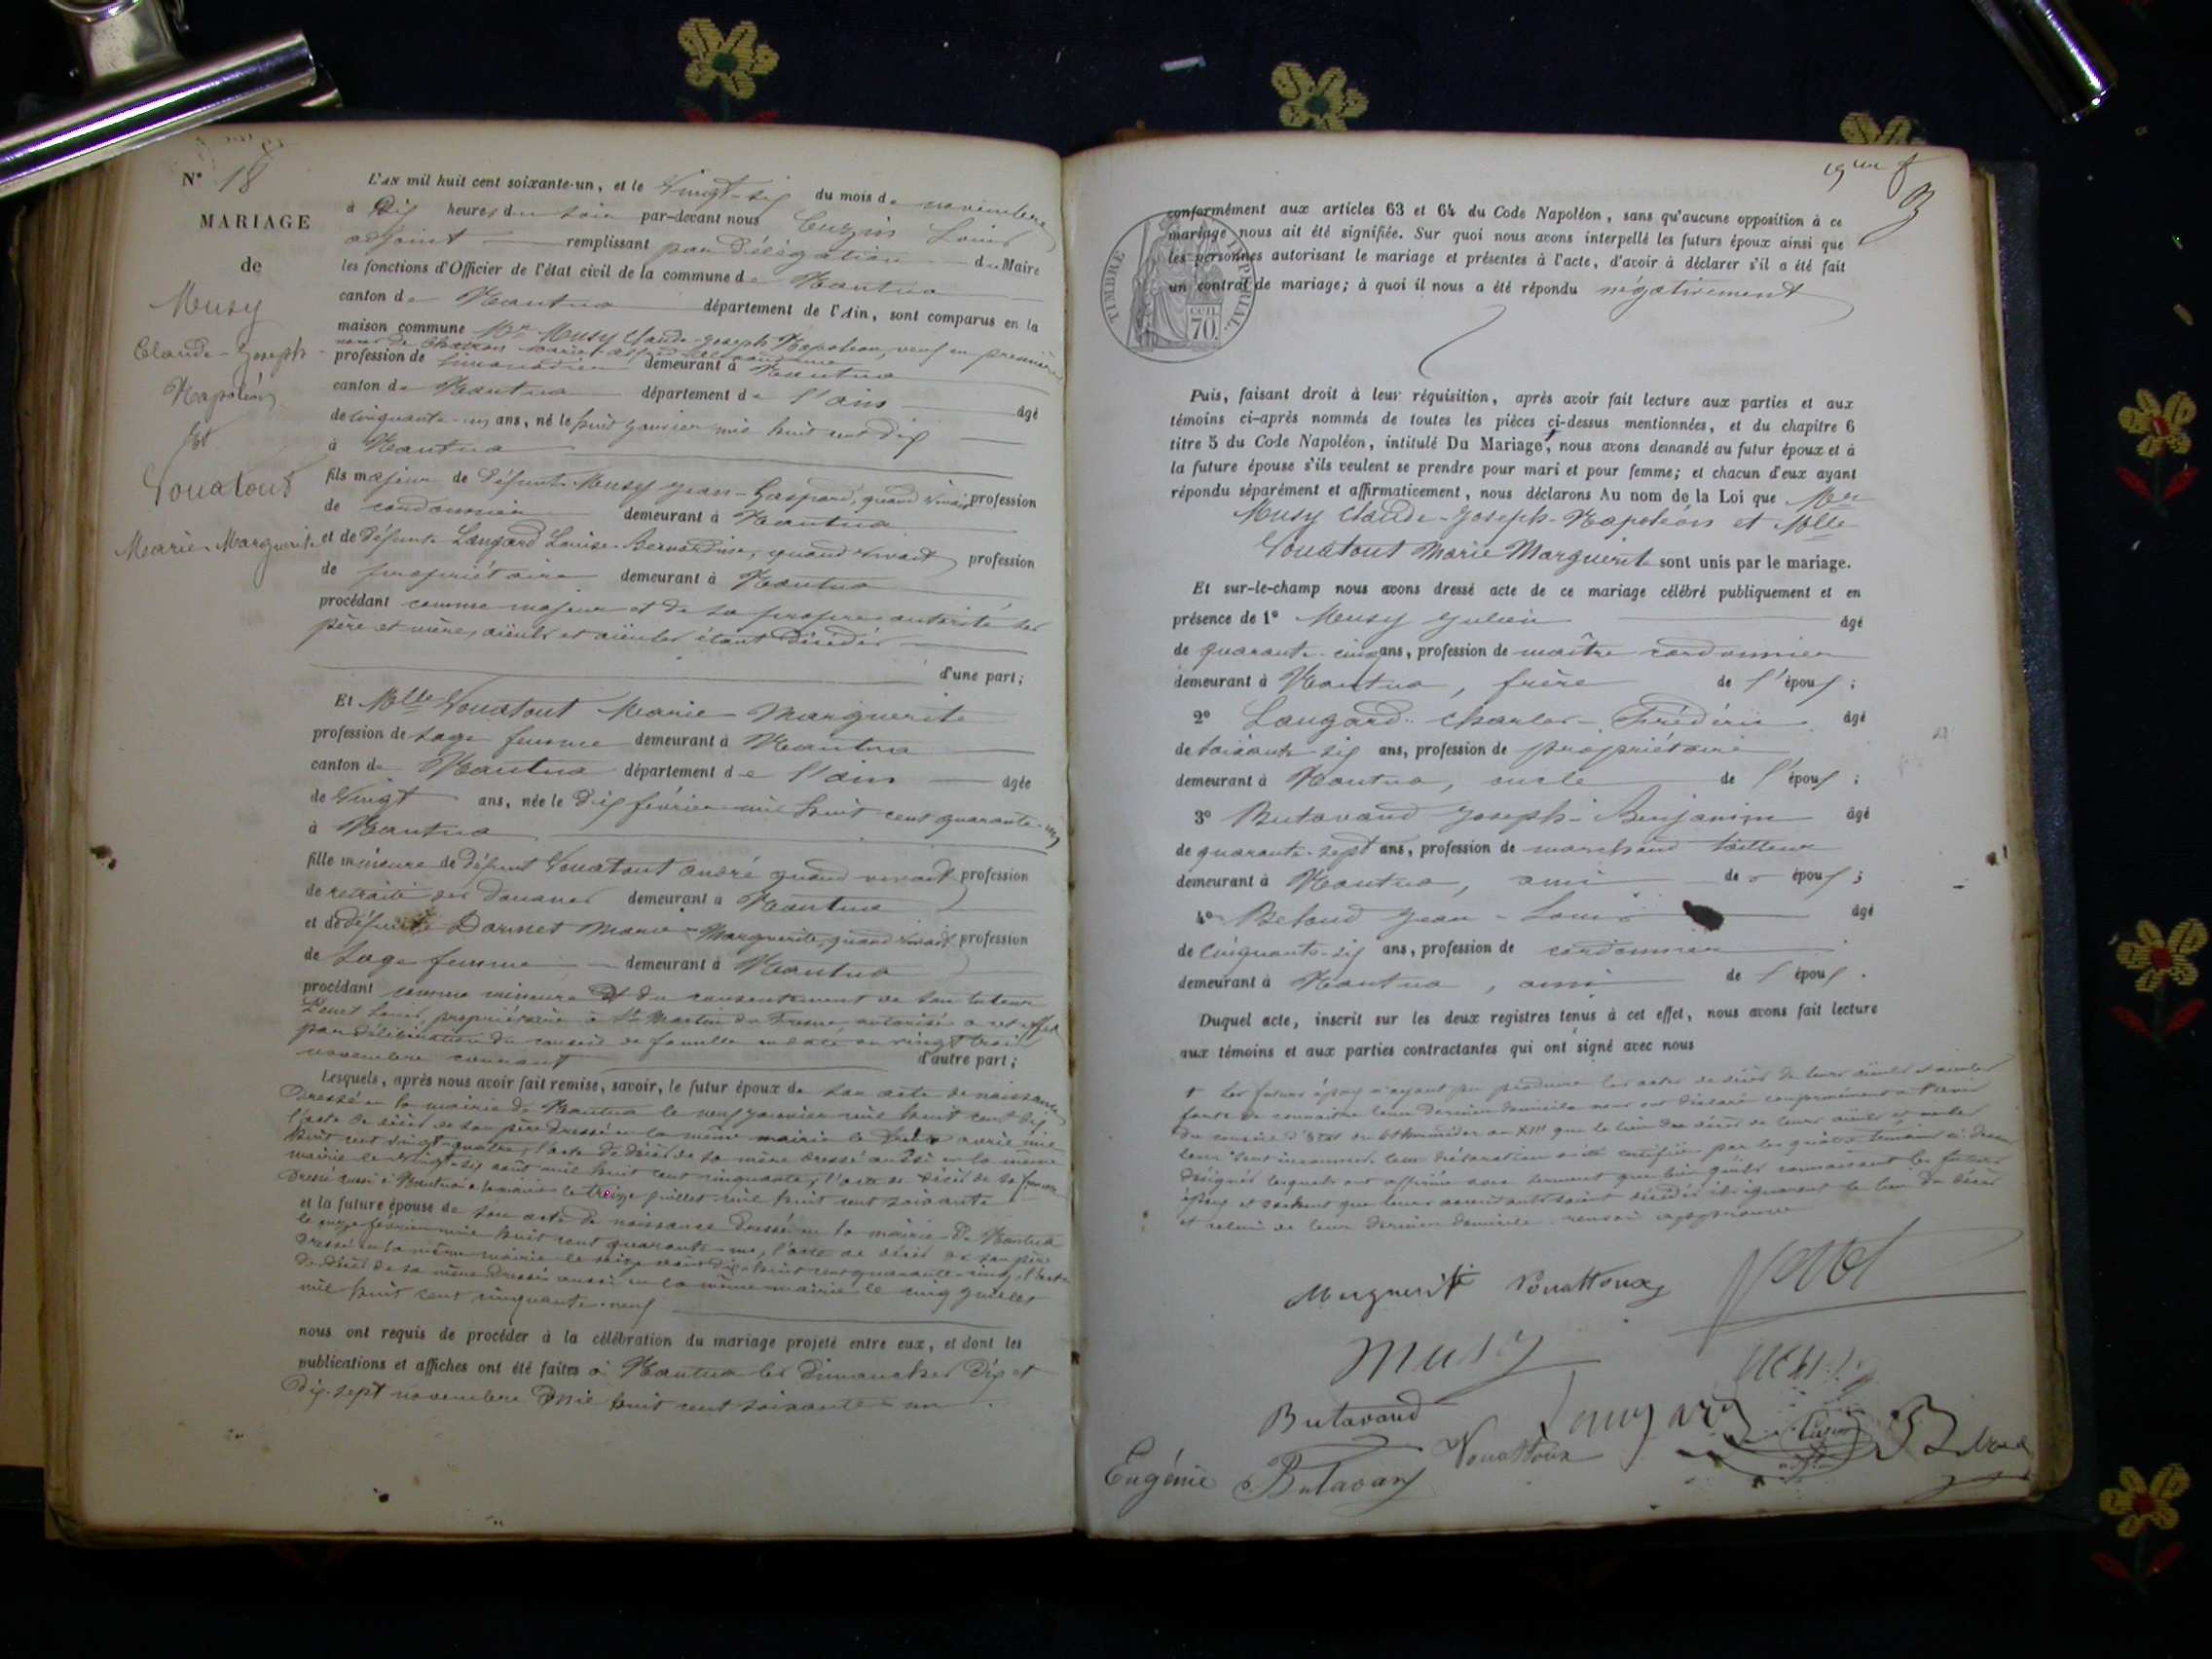 N° 18
MARIAGE
de
Musy
Claude-Joseph-
Napoléon
Et
Vouatout
Marie-Marguerite
L'AN mil huit cent soixante-un, et le Vingt-six du mois de novembre
à Dix heures du soir par-devant nous Cuzin Louis
adjoint remplissant par délégation du Maire
les fonctions d'Officier de l'état civil de la commune de Nantua
canton de Nantua département de l'Ain, sont comparus en la
maison commune Mr Musy Claude-Joseph Napoléon, veuf en premières
profession de limonadier demeurant à Nantua
canton de Nantua département de l'ain âgé
de cinquante-un ans, né le huit janvier mil huit cent dix
à Nantua
fils majeur de défunt Musy Jean-Gaspard, quand vivait profession
de cordonnier demeurant à Nantua
et de défunte Langard Louise-Bernardine, quand vivait profession
de propriétaire demeurant à Nantua
procédant comme majeur et de sa propre autorité ses
père et mère, aïeuls et aïeules étant décédés
d'une part;
Et Mlle Vouatout Marie Marguerite
profession de sage femme demeurant à Nantua
canton de Nantua département de l'ain âgée
de Vingt ans, née le dix février mil huit cent quarante-un
à Nantua
fille mineure de défunt Vouatout andré quand vivait profession
de retraité des douanes demeurant à Nantua
et de défunte Darmet Marie-Marguerite, quand vivait profession
de Sage femme demeurant à Nantua
procédant comme mineure et du consentement de son tuteur
Louis, propriétaire à St Martin du Fresne, autorisé à cet effet
par délibération du conseil de famille en date du vingt trois
novembre courant d'autre part;
Lesquels, après nous avoir fait remise, savoir, le futur époux de son acte de naissance
dressé en la mairie de Nantua le neuf janvier mil huit cent dix
l'acte de décès de son père dressé en la même mairie le avril mil
huit cent vingt-quatre, l'acte de décès de sa mère dressé aussi en la même
mairie le vingt-six août mil huit cent cinquante, l'acte de décès de sa femme
dressé aussi à Nantua à la mairie le treize juillet mil huit cent soixante
et la future épouse de son acte de naissance dressé en la mairie de Nantua
le onze février mil huit cent quarante-un, l'acte de décès de son père
dressé en la même mairie le seize août mil huit cent quarante-cinq, l'acte
de décès de sa mère dressé aussi en la même mairie le cinq juillet
mil huit cent cinquante-neuf
nous ont requis de procéder à la célébration du mariage projeté entre eux, et dont les
publications et affiches ont été faites à Nantua les Dimanches dix et
dix-sept novembre mil huit cent soixante-un.
TIMBRE IMPERIAL.
CEN. 70.
conformément aux articles 63 et 64 du Code Napoléon, sans qu'aucune opposition à ce
mariage nous ait été signifiée. Sur quoi nous avons interpellé les futurs époux ainsi que
les personnes autorisant le mariage et présentes à l'acte, d'avoir à déclarer s'il a été fait
un contrat de mariage; à quoi il nous a été répondu négativement
Puis, faisant droit à leur réquisition, après avoir fait lecture aux parties et aux
témoins ci-après nommés de toutes les pièces ci-dessus mentionnées, et du chapitre 6
titre 5 du Code Napoléon, intitulé Du Mariage, nous avons demandé au futur époux et à
la future épouse s'ils veulent se prendre pour mari et pour femme; et chacun d'eux ayant
répondu séparément et affirmativement, nous déclarons Au nom de la Loi que Mr
Musy Claude-Joseph-Napoléon et Mlle
Vouatout Marie Marguerite sont unis par le mariage.
Et sur-le-champ nous avons dressé acte de ce mariage célébré publiquement et en
présence de 1° Musy Julien âgé
de quarante-cinq ans, profession de maître cordonnier
demeurant à Nantua, frère de l'époux;
2° Langard Charles-Frédéric âgé
de soixante six ans, profession de propriétaire
demeurant à Nantua, oncle de l'époux;
3° Butavand Joseph-Benjamin âgé
de quarante-sept ans, profession de marchand tailleur
demeurant à Nantua, ami de l'époux;
4° Jean-Louis âgé
de cinquante-six ans, profession de cordonnier
demeurant à Nantua, ami de l'époux.
Duquel acte, inscrit sur les deux registres tenus à cet effet, nous avons fait lecture
aux témoins et aux parties contractantes qui ont signé avec nous
† Les futurs époux n'ayant pu produire les actes de décès de leurs aïeuls et aïeules
faute de connaître leur dernier domicile nous ont déclaré conformément à l'avis
du conseil d'Etat du 4 thermidor an XIII que le lieu des décès de leurs aïeuls et aïeules
leur sont inconnus. Leur déclaration a été certifiée par les quatre témoins ci dessus
désignés lesquels ont affirmé sous serment que bien qu'ils connaissent les futurs
époux et sachent que leurs ascendants soient décédés ils ignorent le lieu du décès
et celui de leur dernier domicile. renvoi approuvé
Marguerite Vouattoux
Musy
Butavand
Langard
Vouattoux
Eugénie Butavand